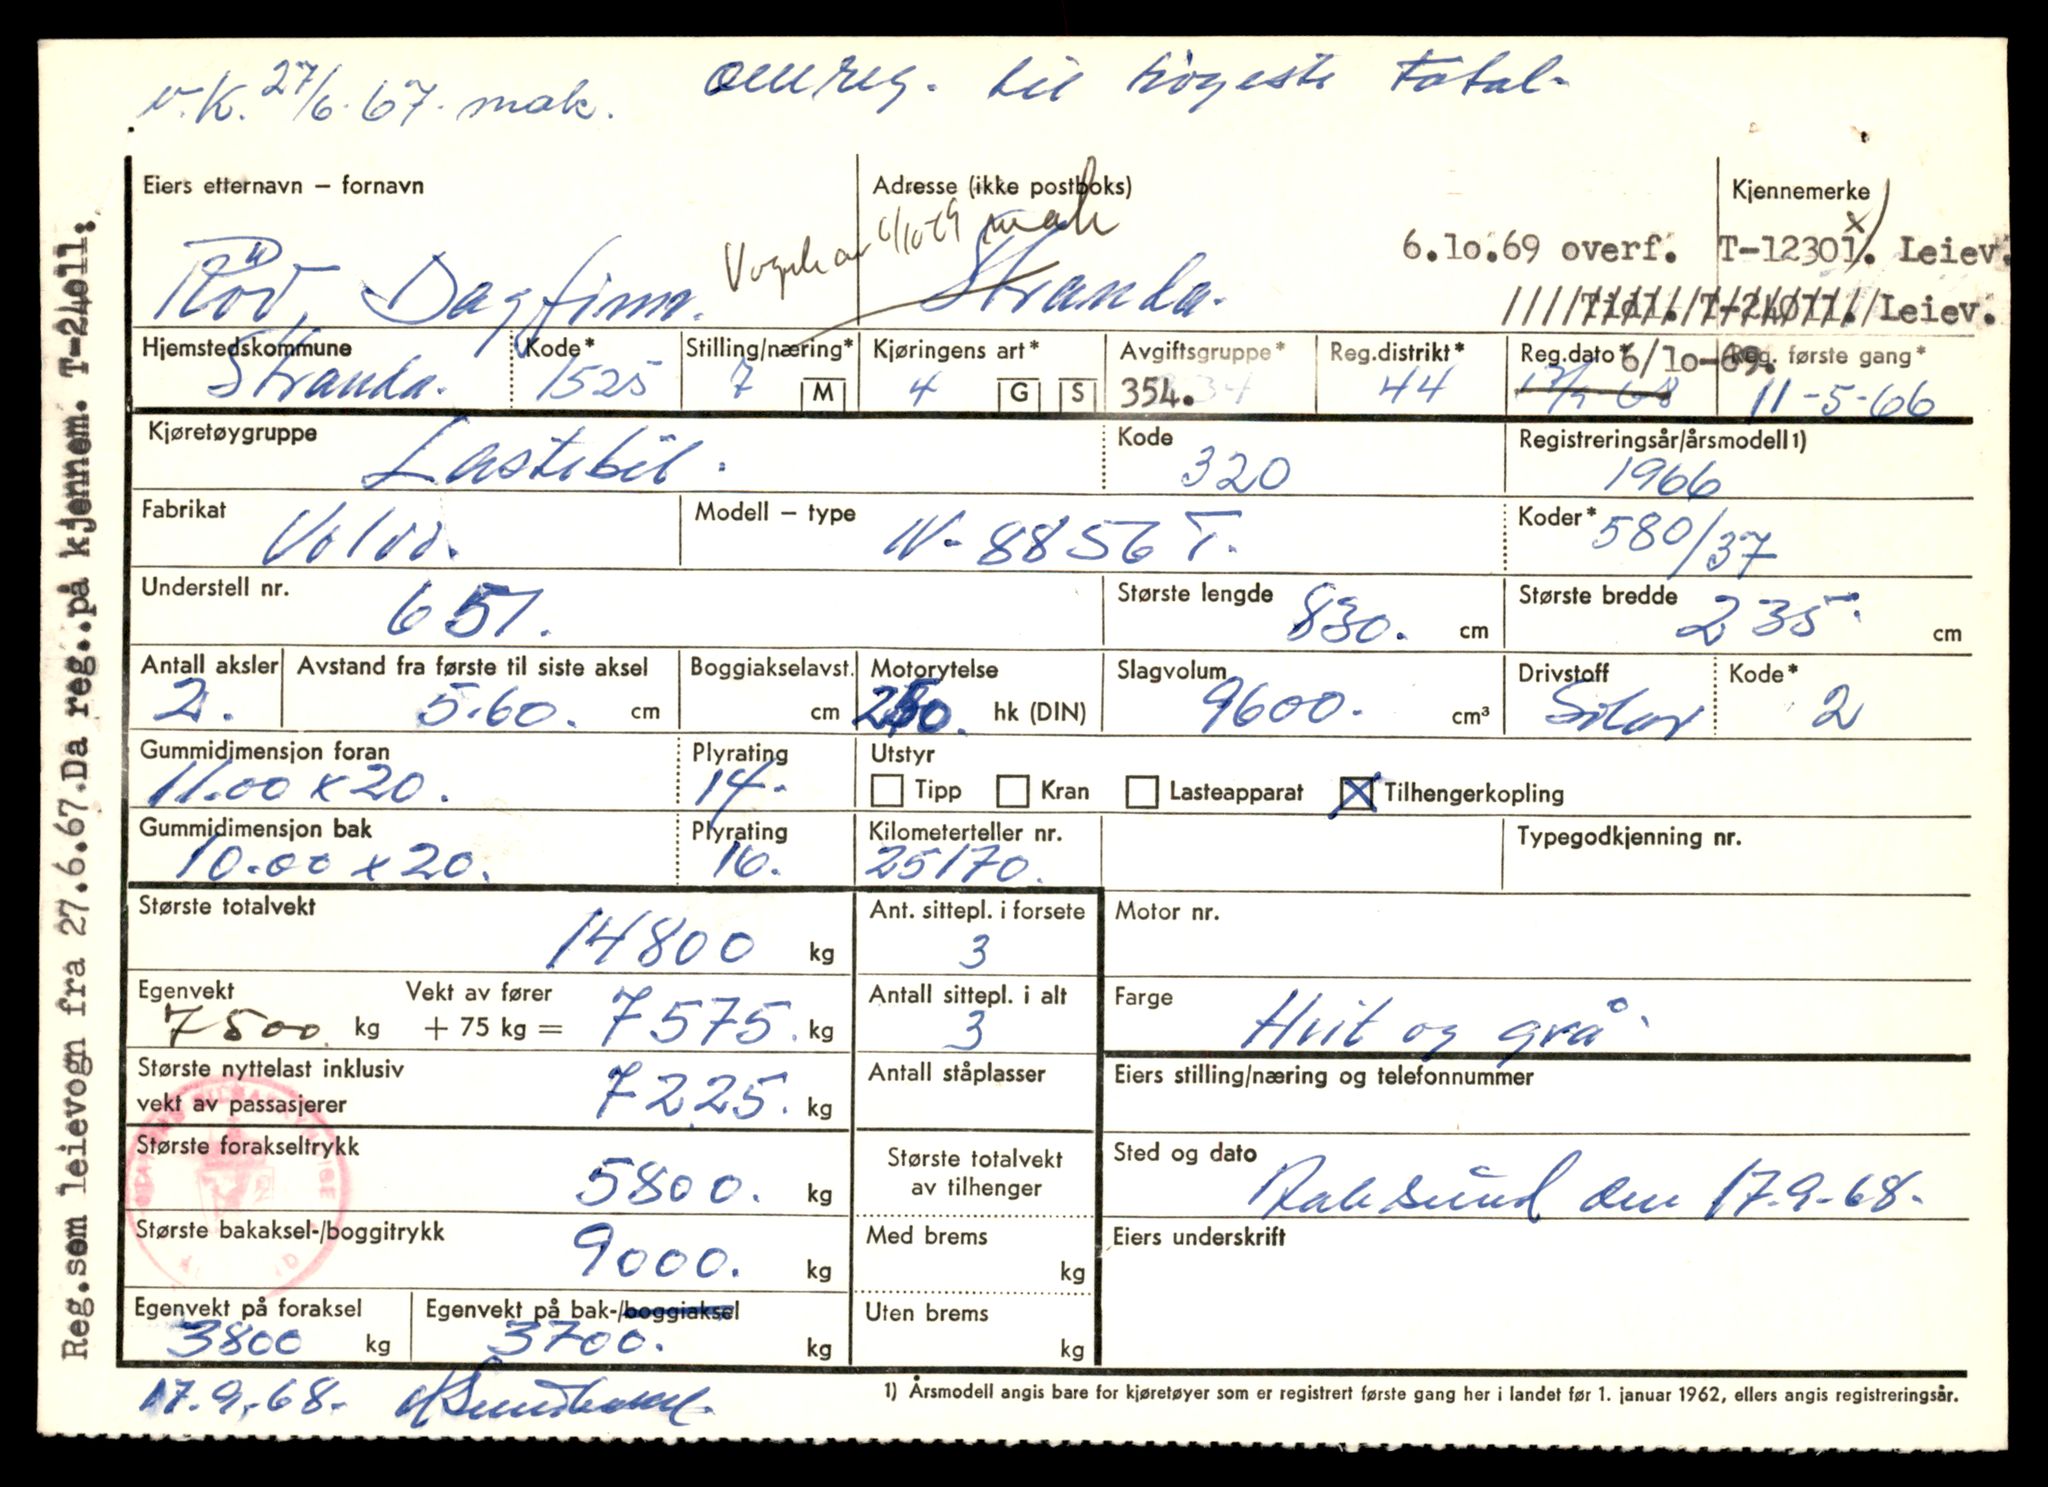 v.K. 27/6-67. mak. omreg. til høgeste total-
Eiers etternavn – fornavn
Adresse (ikke postboks)
Kjennemerke
6/10-69 mak
6.10.69 overf. T-12301. Leiev.
x)
Dagfinn.
Stranda.
T-24011. Leiev.
Hjemstedskommune Kode* Stilling/næring* Kjøringens art* Avgiftsgruppe* Reg.distrikt* Reg.dato* Reg. første gang*
6/10-69.
Stranda. 1525 7 M 4 G S 354. 44 17/9 68 11-5-66
Kjøretøygruppe Kode Registreringsår/årsmodell 1)
Lastebil. 320 1966
Fabrikat Modell – type Koder*
Volvo. N-8856 T. 580/37
Understell nr. Største lengde Største bredde
651. 830. cm 235. cm
Antall aksler Avstand fra første til siste aksel Boggiakselavst. Motorytelse Slagvolum Drivstoff Kode*
2. 5.60. cm cm hk (DIN) 9600. cm³ Solar 2
Gummidimensjon foran Plyrating Utstyr
11.00 x 20. 14. Tipp Kran Lasteapparat Tilhengerkopling
Gummidimensjon bak Plyrating Kilometerteller nr. Typegodkjenning nr.
10.00 x 20. 16. 25170.
Største totalvekt Ant. sittepl. i forsete Motor nr.
14800 kg 3
Egenvekt Vekt av fører Antall sittepl. i alt Farge
7500 kg + 75 kg = 7575. kg 3 Hvit og grå.
Største nyttelast inklusiv
vekt av passasjerer 7225. kg
Antall ståplasser
Eiers stilling/næring og telefonnummer
Største forakseltrykk 5800. kg
Største totalvekt
av tilhenger
Sted og dato
den 17.9-68.
Største bakaksel-/boggitrykk 9000. kg
Med brems kg
Eiers underskrift
Egenvekt på foraksel Egenvekt på bak-/boggiaksel Uten brems
3800 kg 3700. kg kg
17.9.-68.
1) Årsmodell angis bare for kjøretøyer som er registrert første gang her i landet før 1. januar 1962, ellers angis registreringsår.
Reg.som leievogn fra 27.6.67.Da reg..på kjennem. T-24011.